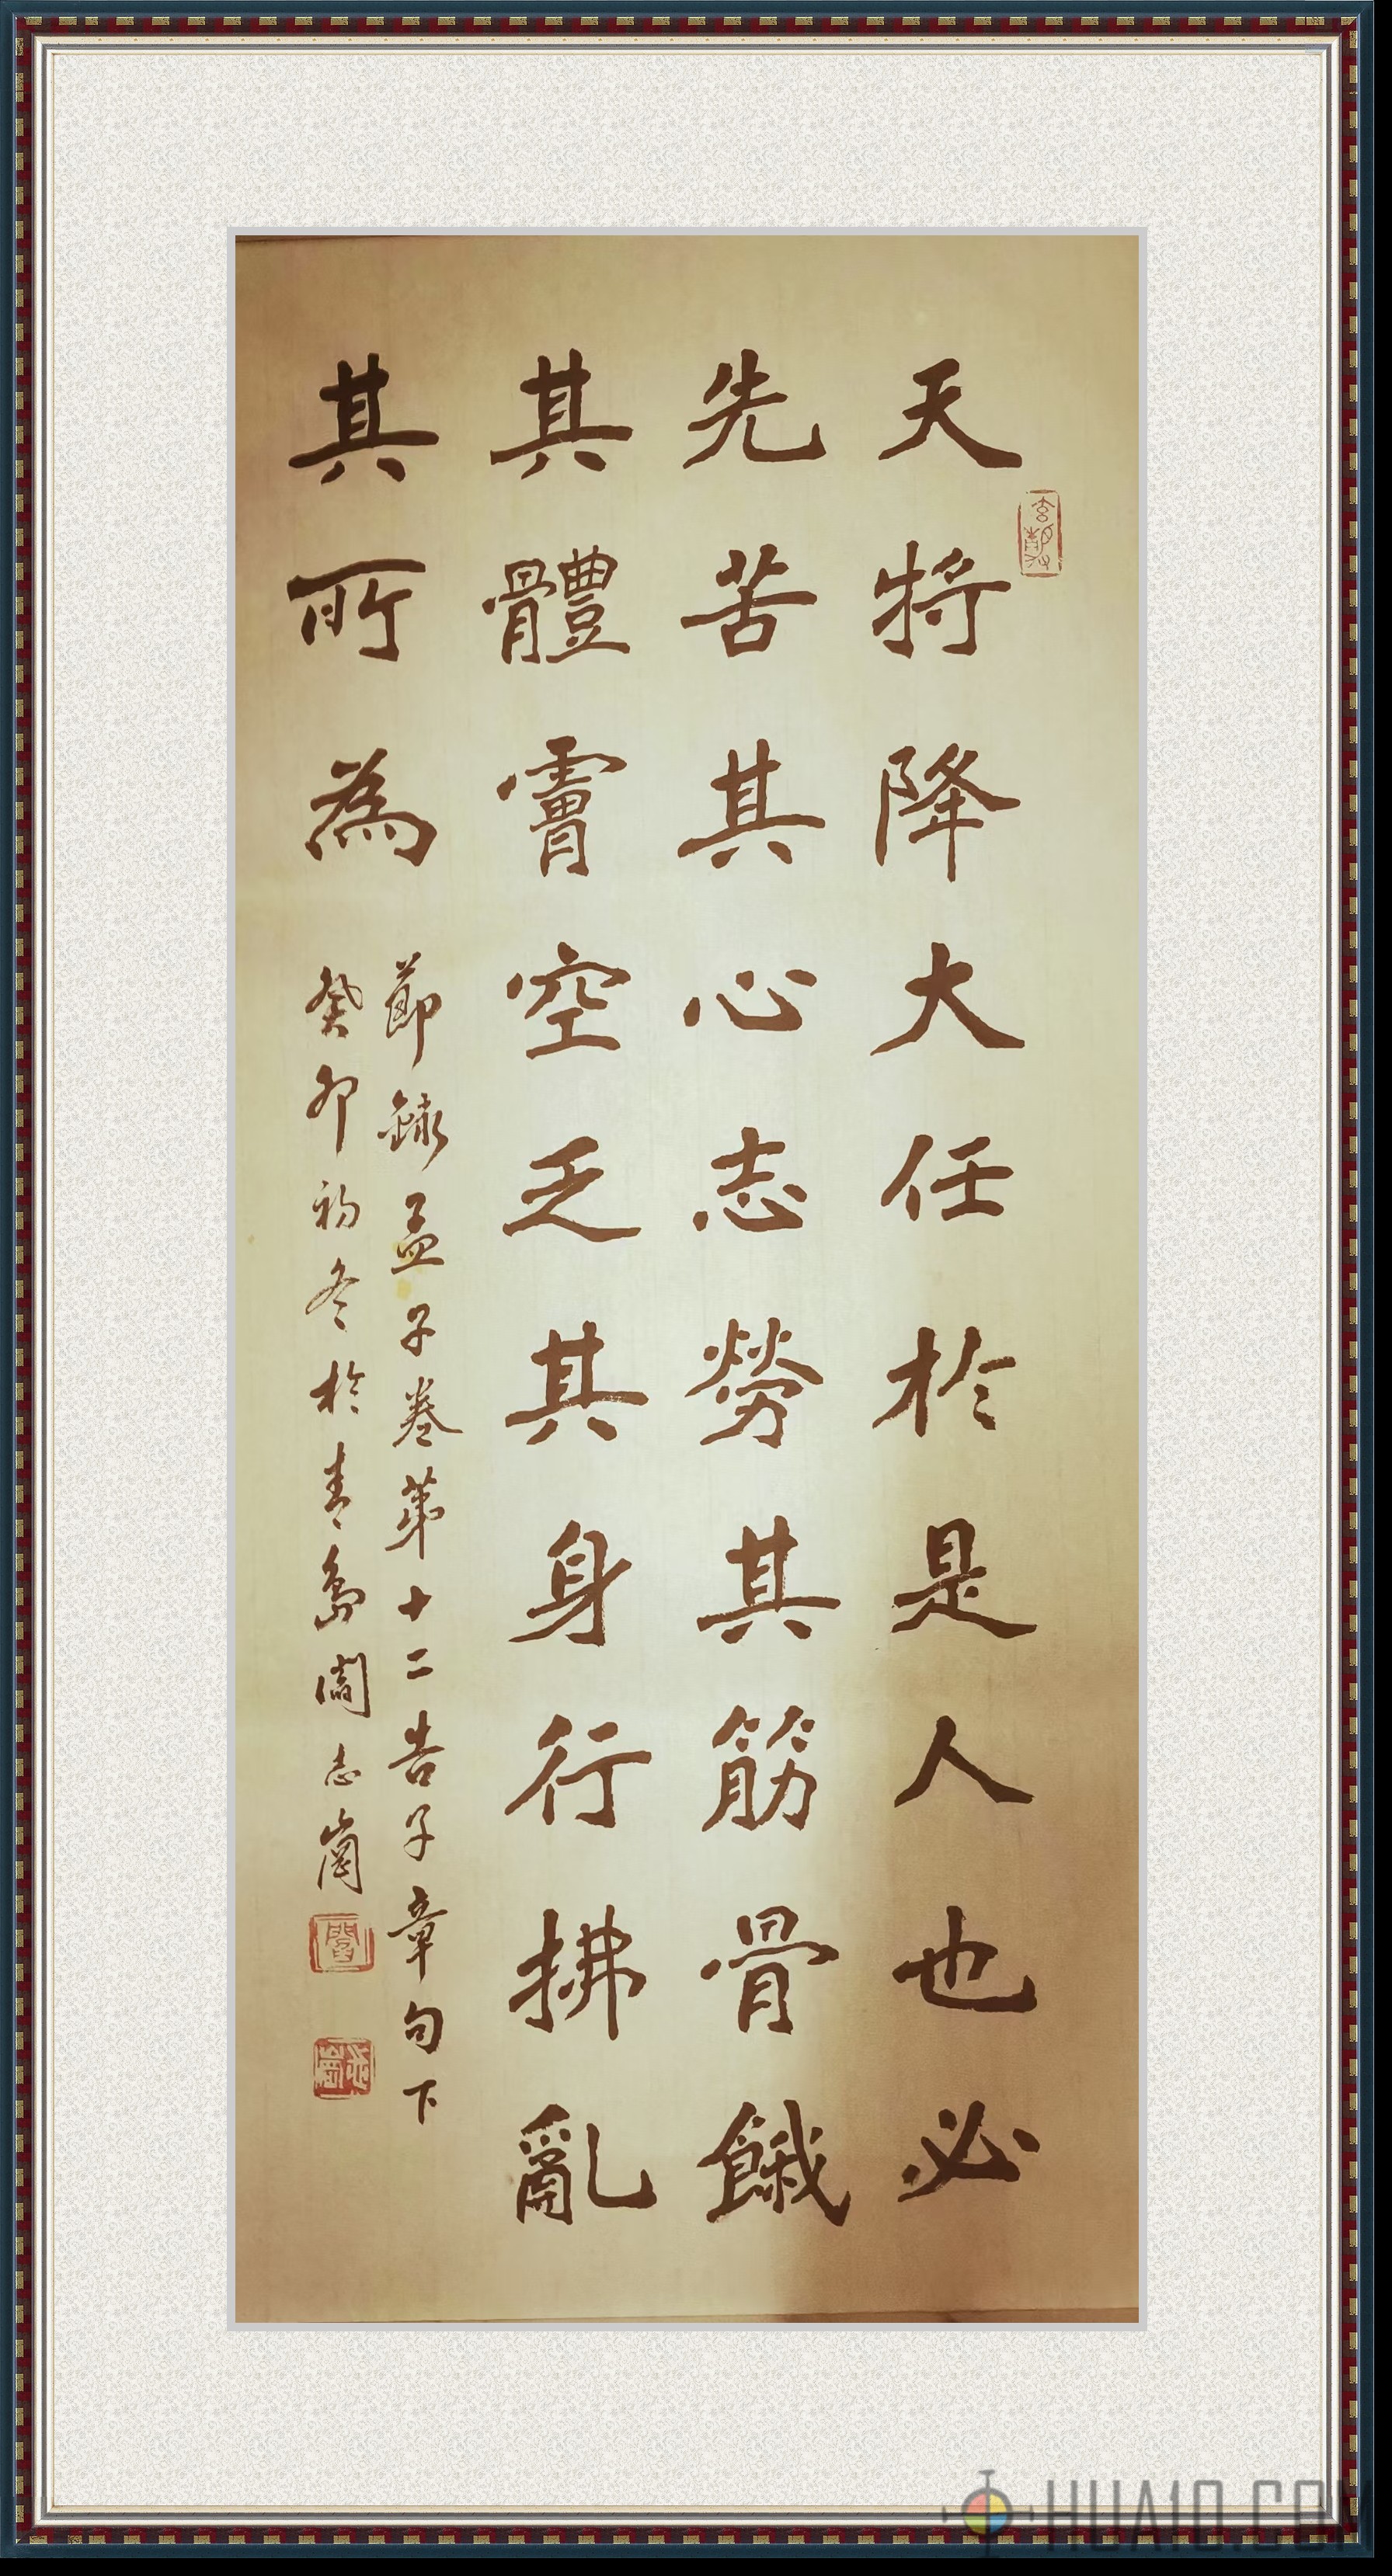 天將降大任於是人也必
先苦其心志勞其筋骨餓
其體膚空乏其身行拂亂
其所為
節錄孟子卷第十二告子章句下
癸卯初冬於青島閻志崗
HUA10.COM